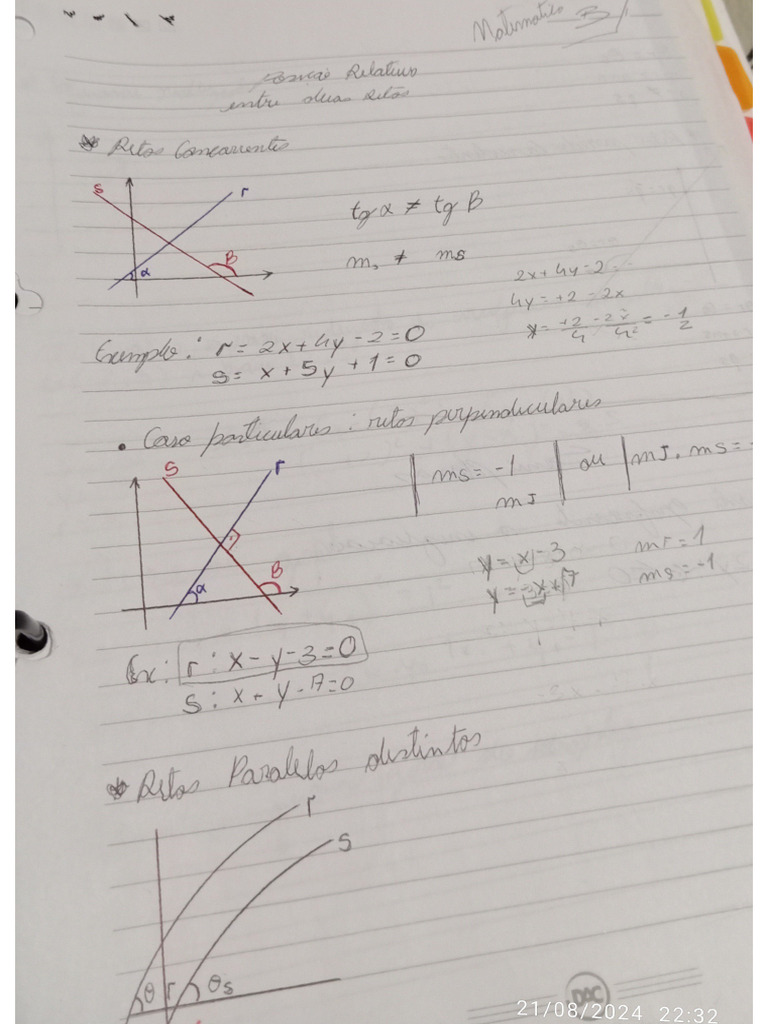 Matematica B
Posição Relativa
entre duas retas
Retas Concorrentes
s r
tg α ≠ tg B
B
α
m, ≠ ms
2x + 4y - 2 =
4y = +2 - 2x
Exemplo: r = 2x + 4y - 2 = 0
s = x + 5y + 1 = 0
• Caso particulares: retas perpendiculares
s r
ms = -1 ou mJ . ms =
mJ
y = x - 3 mr = 1
ms = -1
B
α
Ex: r: x - y - 3 = 0
s: x + y - 7 = 0
Retas Paralelas distintos
r
s
θ r θs
DAC
21/08/2024 22:32